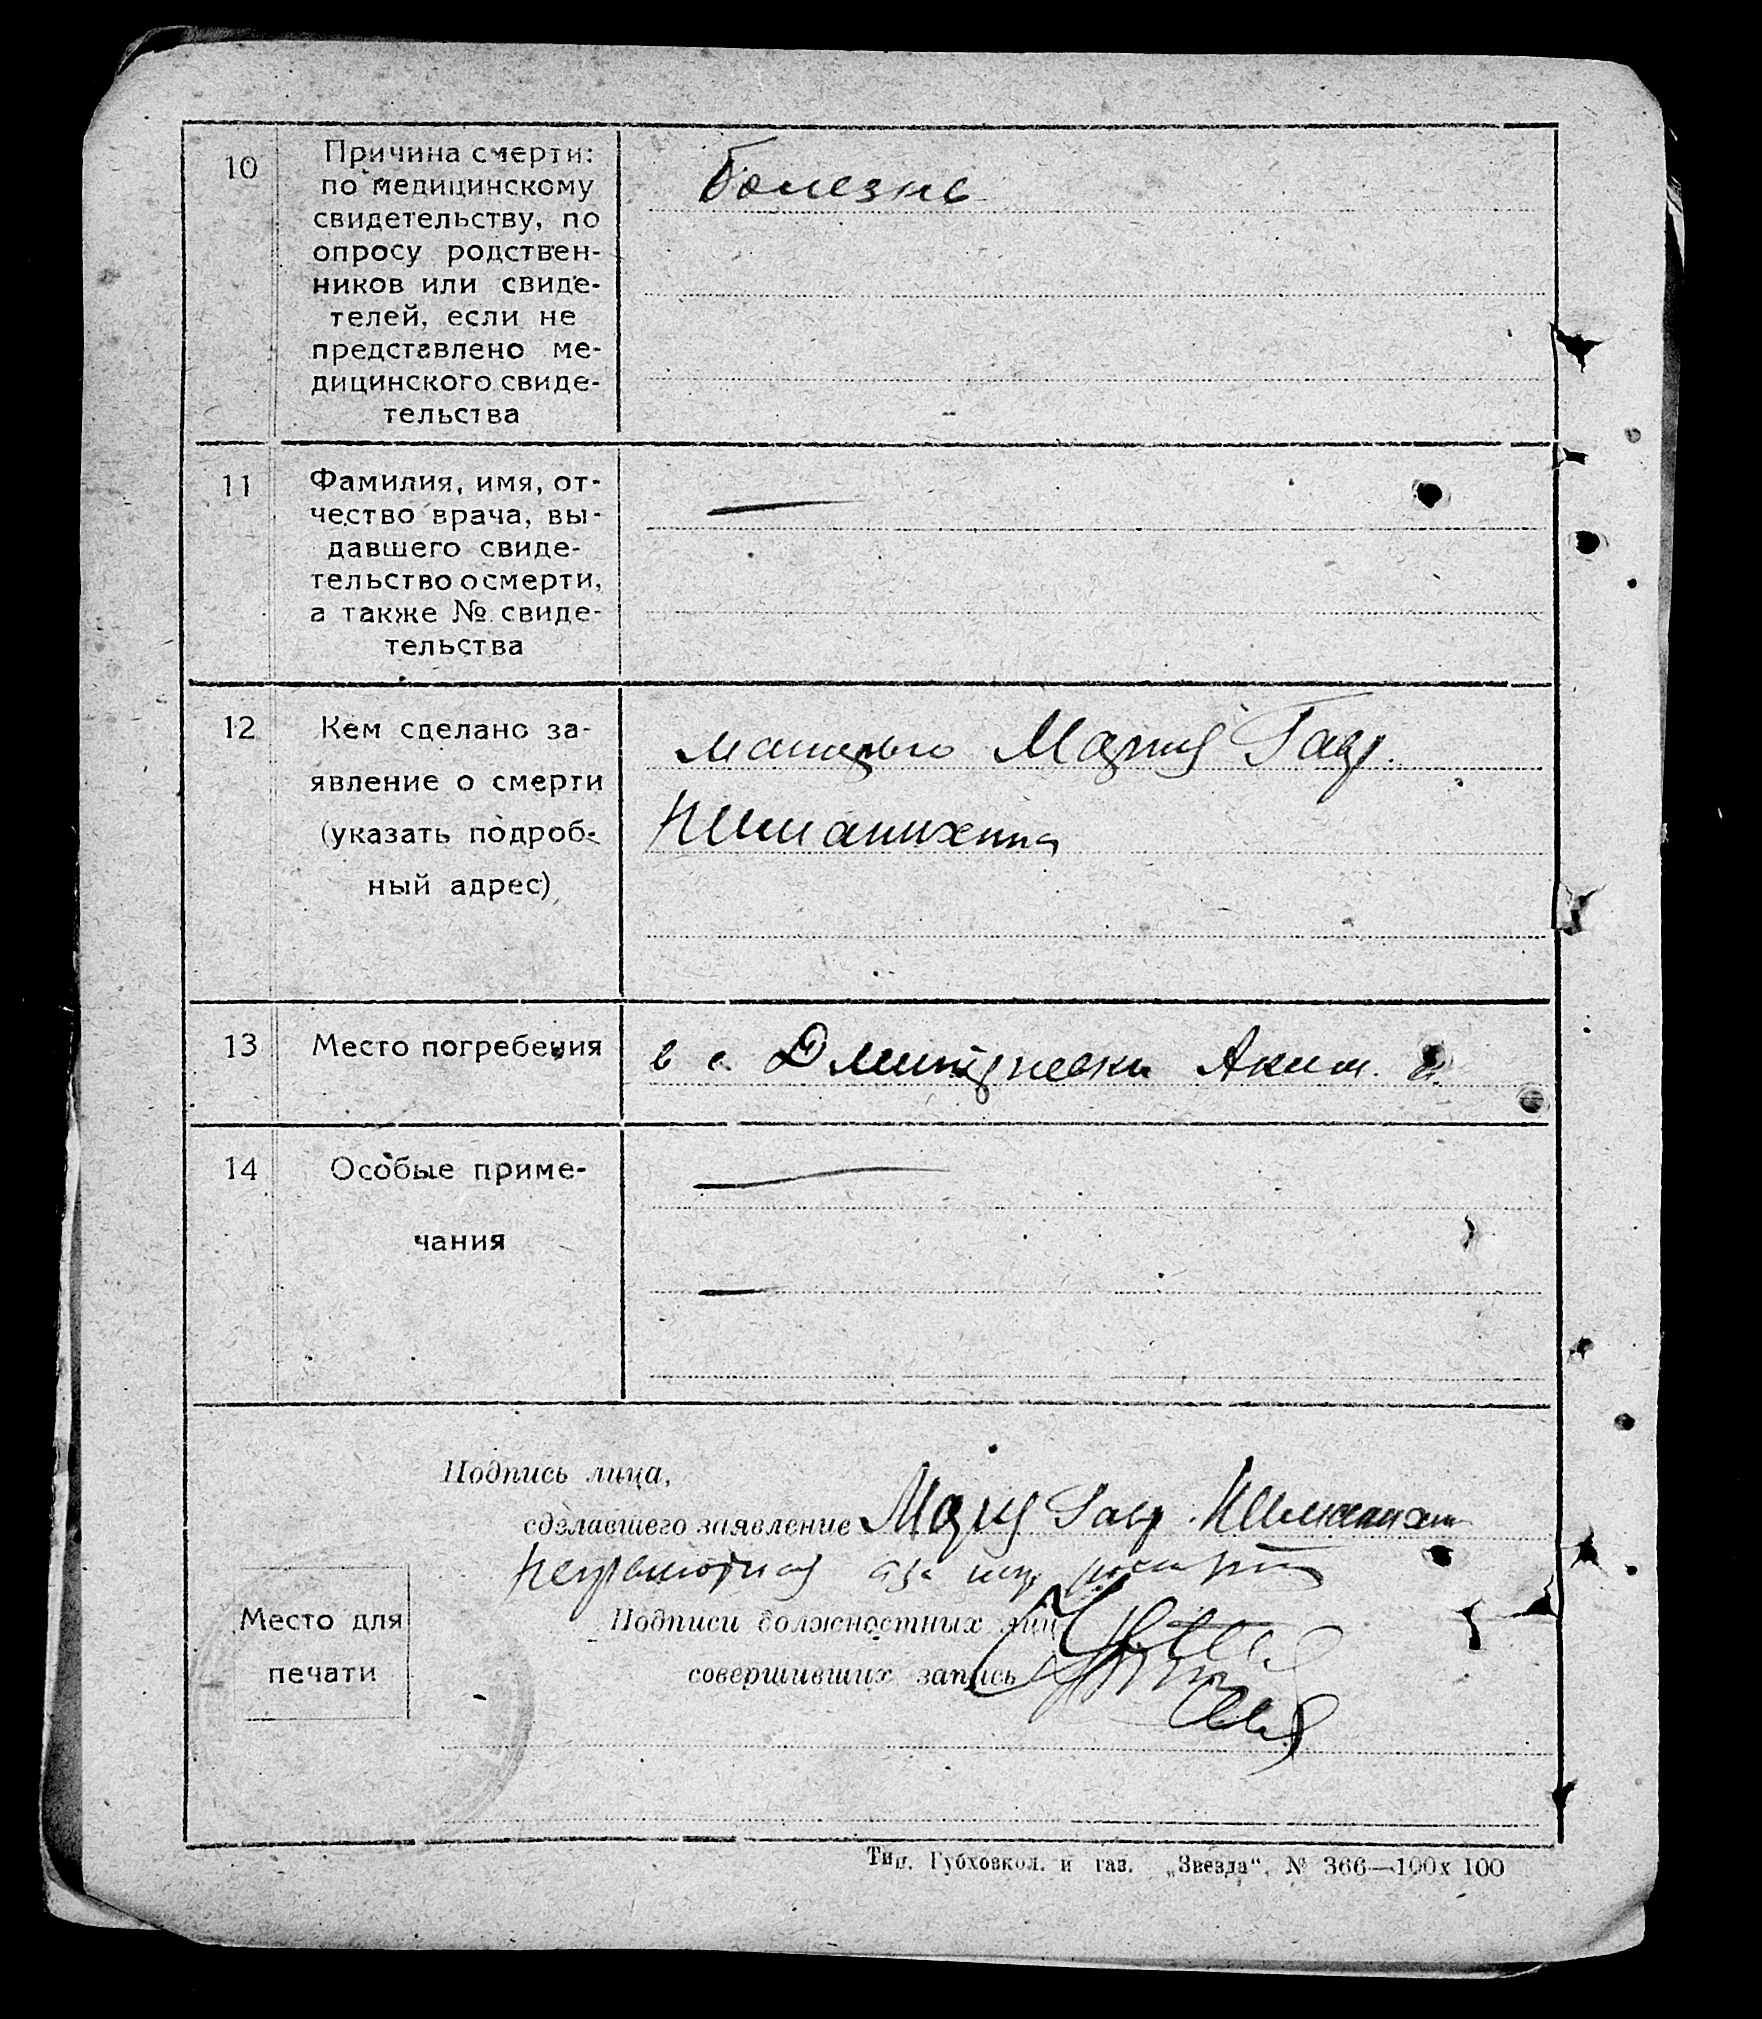 10
Причина смерти:
по медицинскому
свидетельству, по
опросу родствен-
ников или свиде-
телей, если не
представлено ме-
дицинского свиде-
тельства
Болезнь
11
Фамилия, имя, от-
чество врача, вы-
давшего свиде-
тельство о смерти,
а также № свиде-
тельства
12
Кем сделано за-
явление о смерти
(указать подроб-
ный адрес)
матерью Мария Гавр.
13
Место погребения
в с. Дмитриевки Аким.
14
Особые приме-
чания
Подпись лица,
сделавшего заявление Мария Гавр.
неграмотная
Место для
печати
Подписи должностных лиц
совершивших запись
Тип. Губховкол. и газ. „Звезда“, № 366—100х100